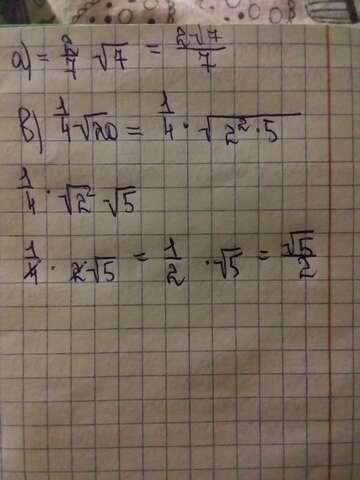 а) = 2/7 √7 = 2√7/7
в) 1/4 √20 = 1/4 · √2² · 5
1/4 · √2² · √5
1/4 · 2√5 = 1/2 · √5 = √5/2